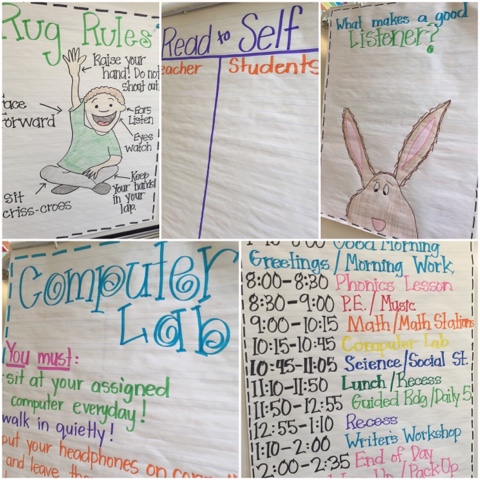 Rug Rules
Raise your
hand! Do not
shout out.
Face
forward
Ears
Listen
Eyes
watch
Keep
your hands
in your
lap.
sit
criss-cross
Read to Self
eacher Students
What makes a good
Listener?
Computer
Lab
You must:
sit at your assigned
computer everyday!
walk in quietly!
put your headphones on
and leave
Good Morning
Greetings/Morning Work
8:00-8:30 Phonics Lesson
8:30-9:00 P.E./Music
9:00-10:15 Math/Math Stations
10:15-10:45 Computer Lab
10:45-11:05 Science/Social St.
11:10-11:50 Lunch/Recess
11:50-12:55 Guided Rdg/Daily 5
12:55-1:10 Recess
1:10-2:00 Writer's Workshop
2:00-2:35 End of Day
Pack-Up